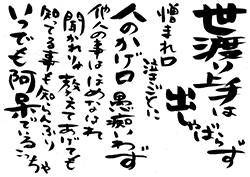 世渡り上手は
出しゃばらず
憎まれ口
泣ごとに
人のかげ口 愚痴いわず
他人の事はほめなはれ
聞かれりゃ教えてあげても
知てる事も知らんふり
いつでも阿呆でいるこっちゃ